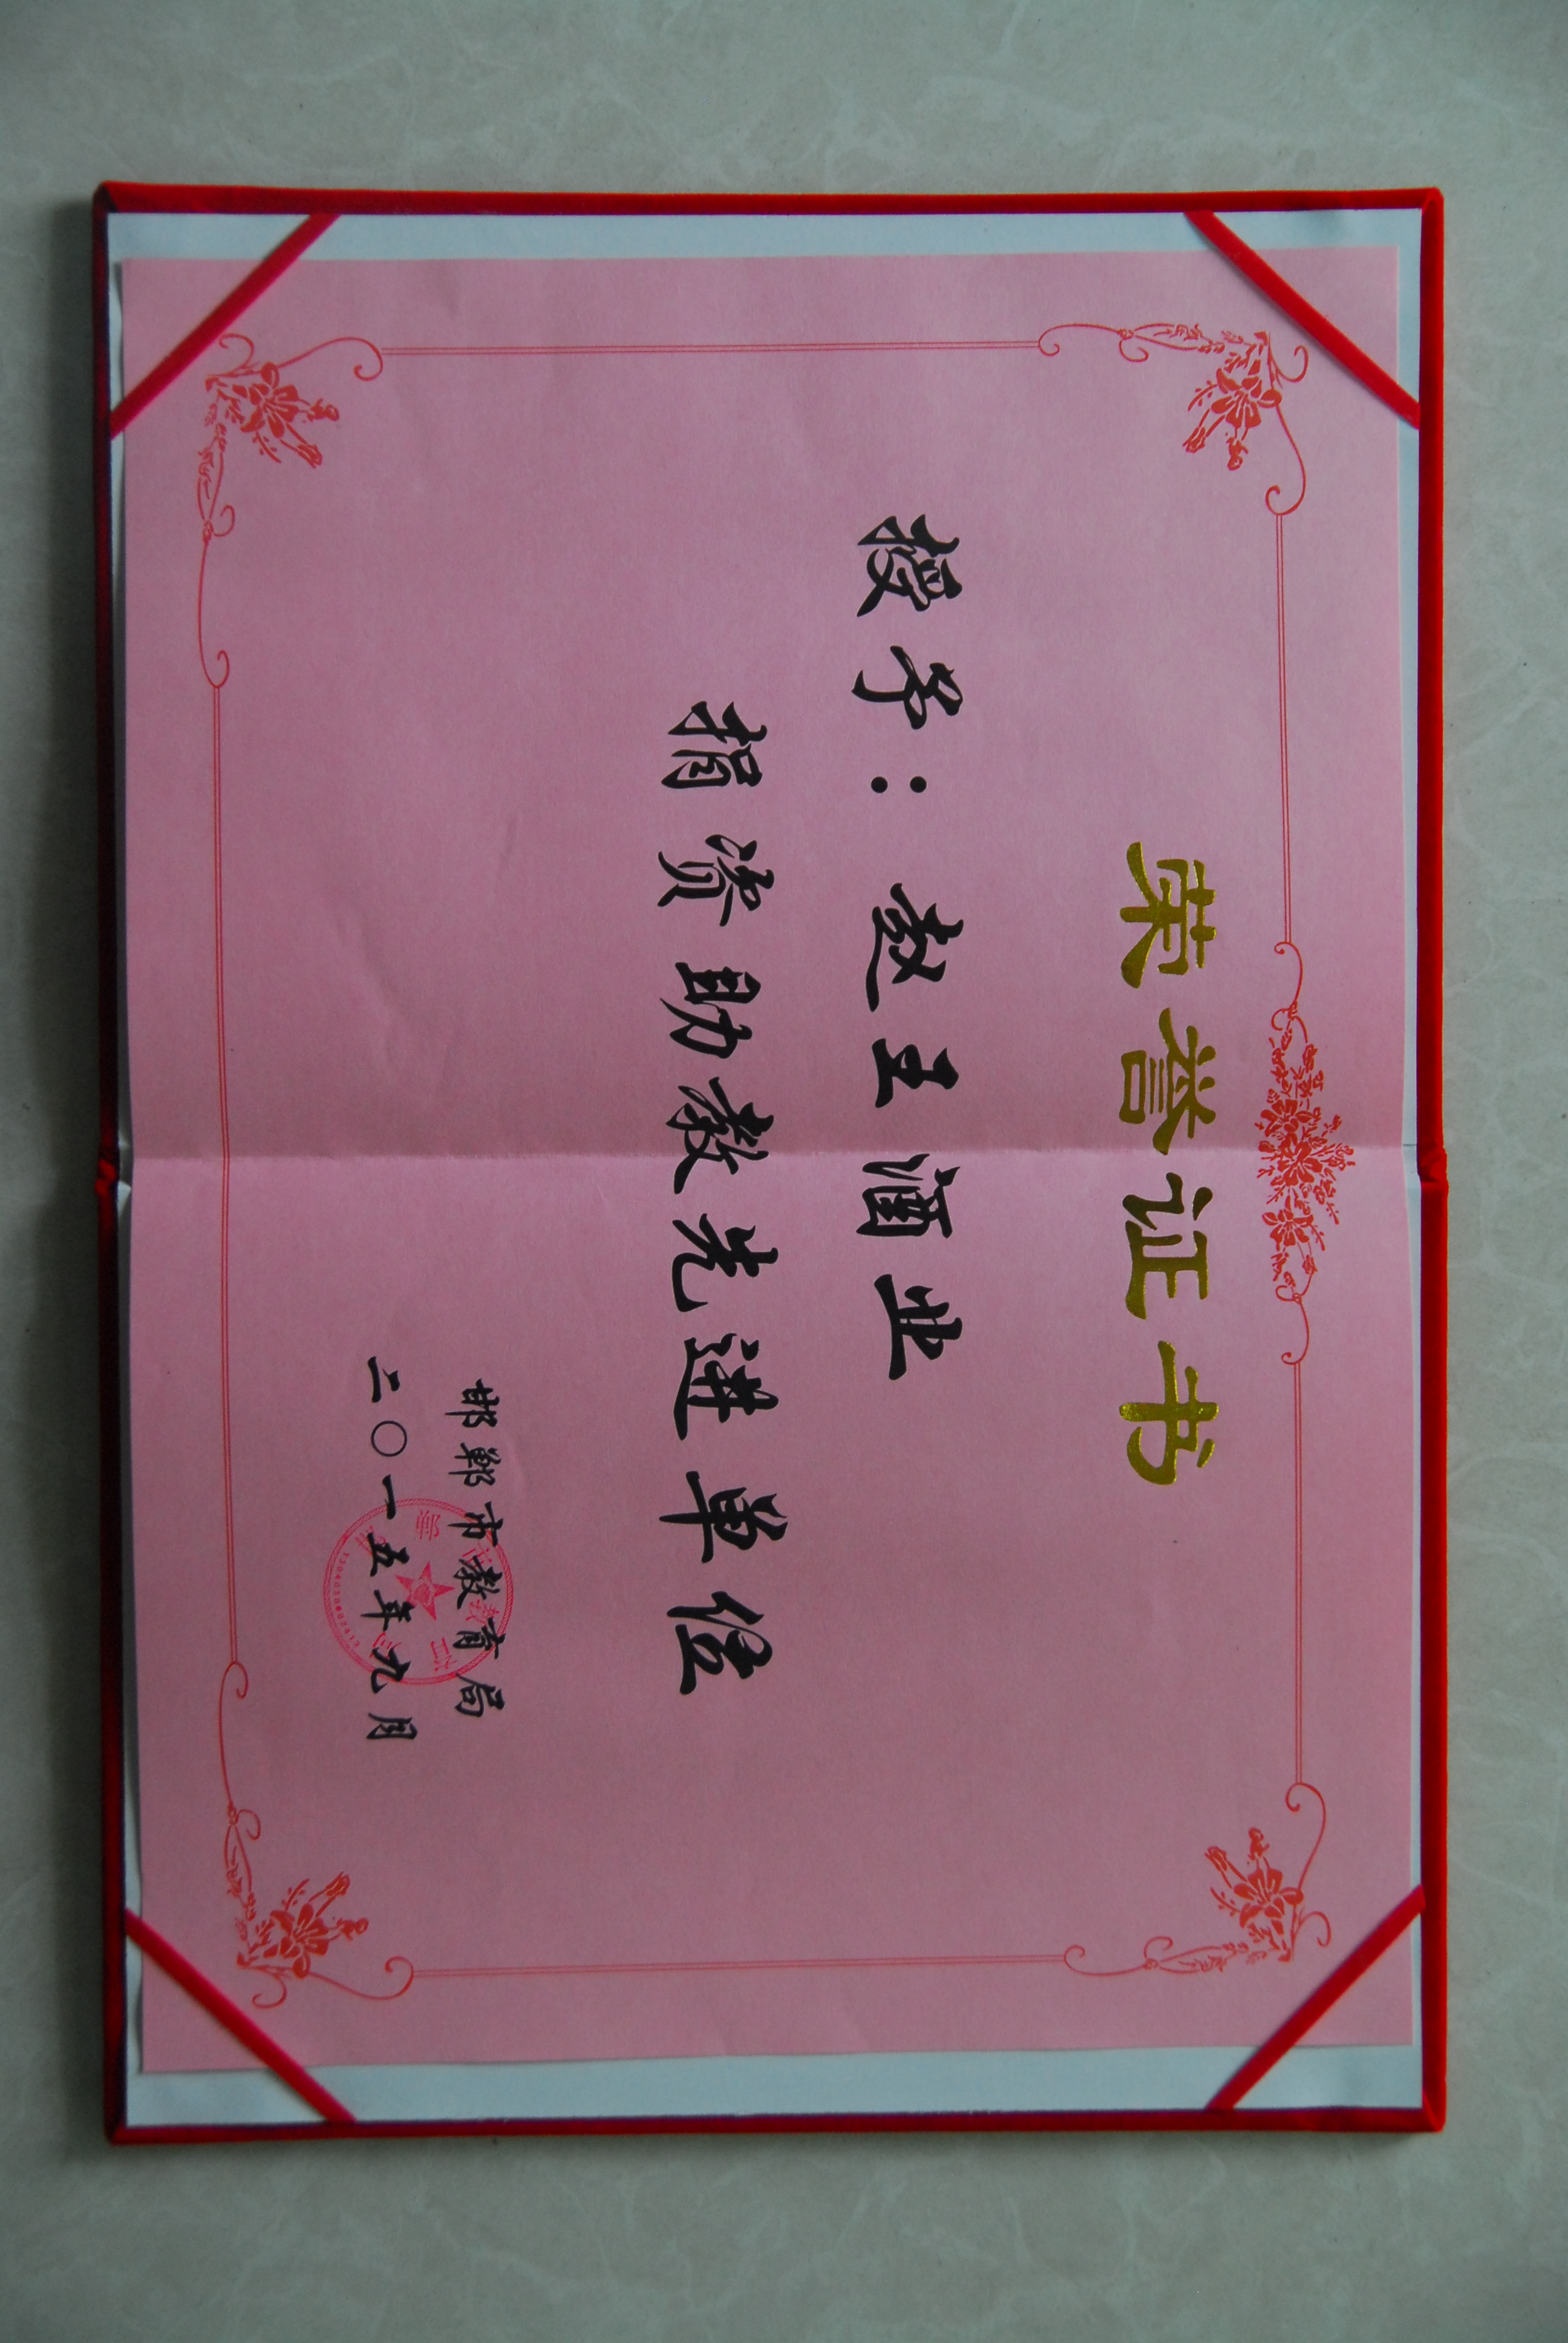 荣誉证书
授予：赵王酒业
捐资助教先进单位
邯郸市教育局
二〇一五年九月